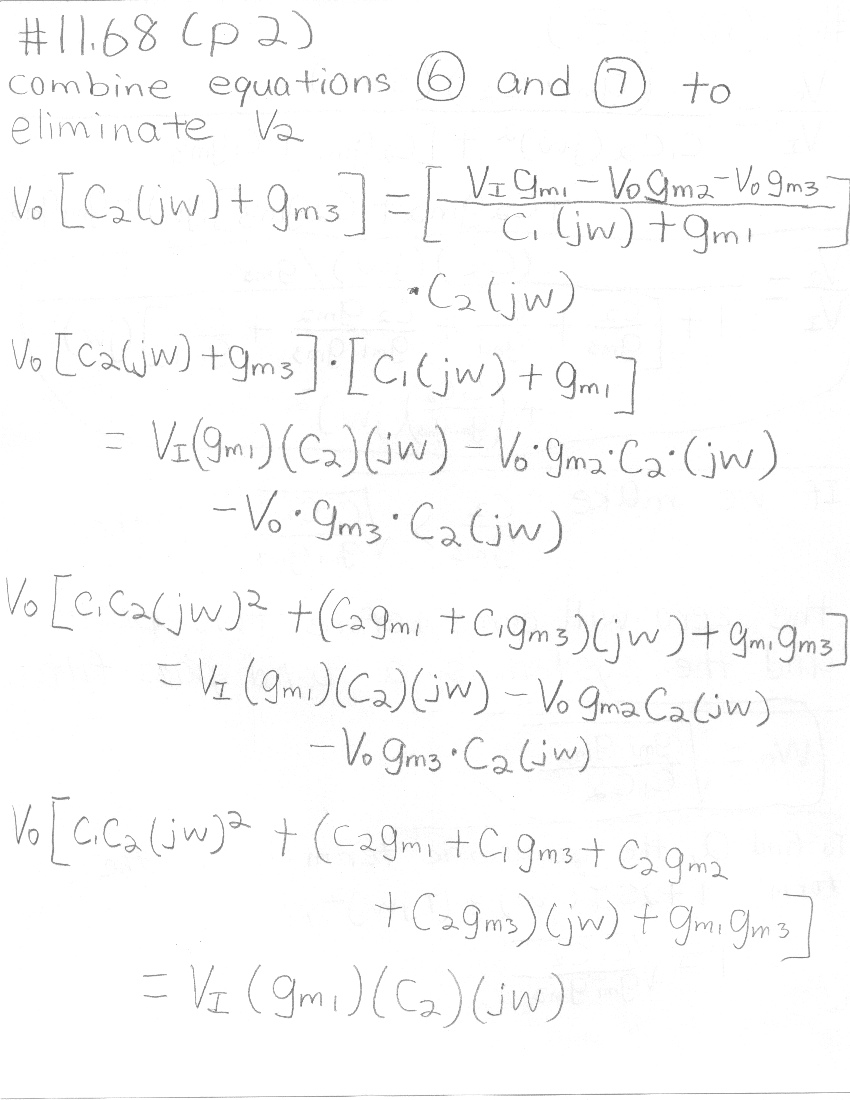 #11.68 (p 2)
combine equations ⑥ and ⑦ to
eliminate V₂
V₀[C₂(jw)+gm3] = [(V_I gm1 − V₀gm2 − V₀gm3)/(C₁(jw)+gm1)]
·C₂(jw)
V₀[C₂(jw)+gm3]·[C₁(jw)+gm1]
= V_I(gm1)(C₂)(jw) − V₀·gm2·C₂·(jw)
−V₀·gm3·C₂(jw)
V₀[C₁C₂(jw)² +(C₂gm1 +C₁gm3)(jw)+gm1gm3]
= V_I(gm1)(C₂)(jw) − V₀gm2C₂(jw)
−V₀gm3·C₂(jw)
V₀[C₁C₂(jw)² + (C₂gm1+C₁gm3+C₂gm2
+C₂gm3)(jw) + gm1gm3]
= V_I(gm1)(C₂)(jw)